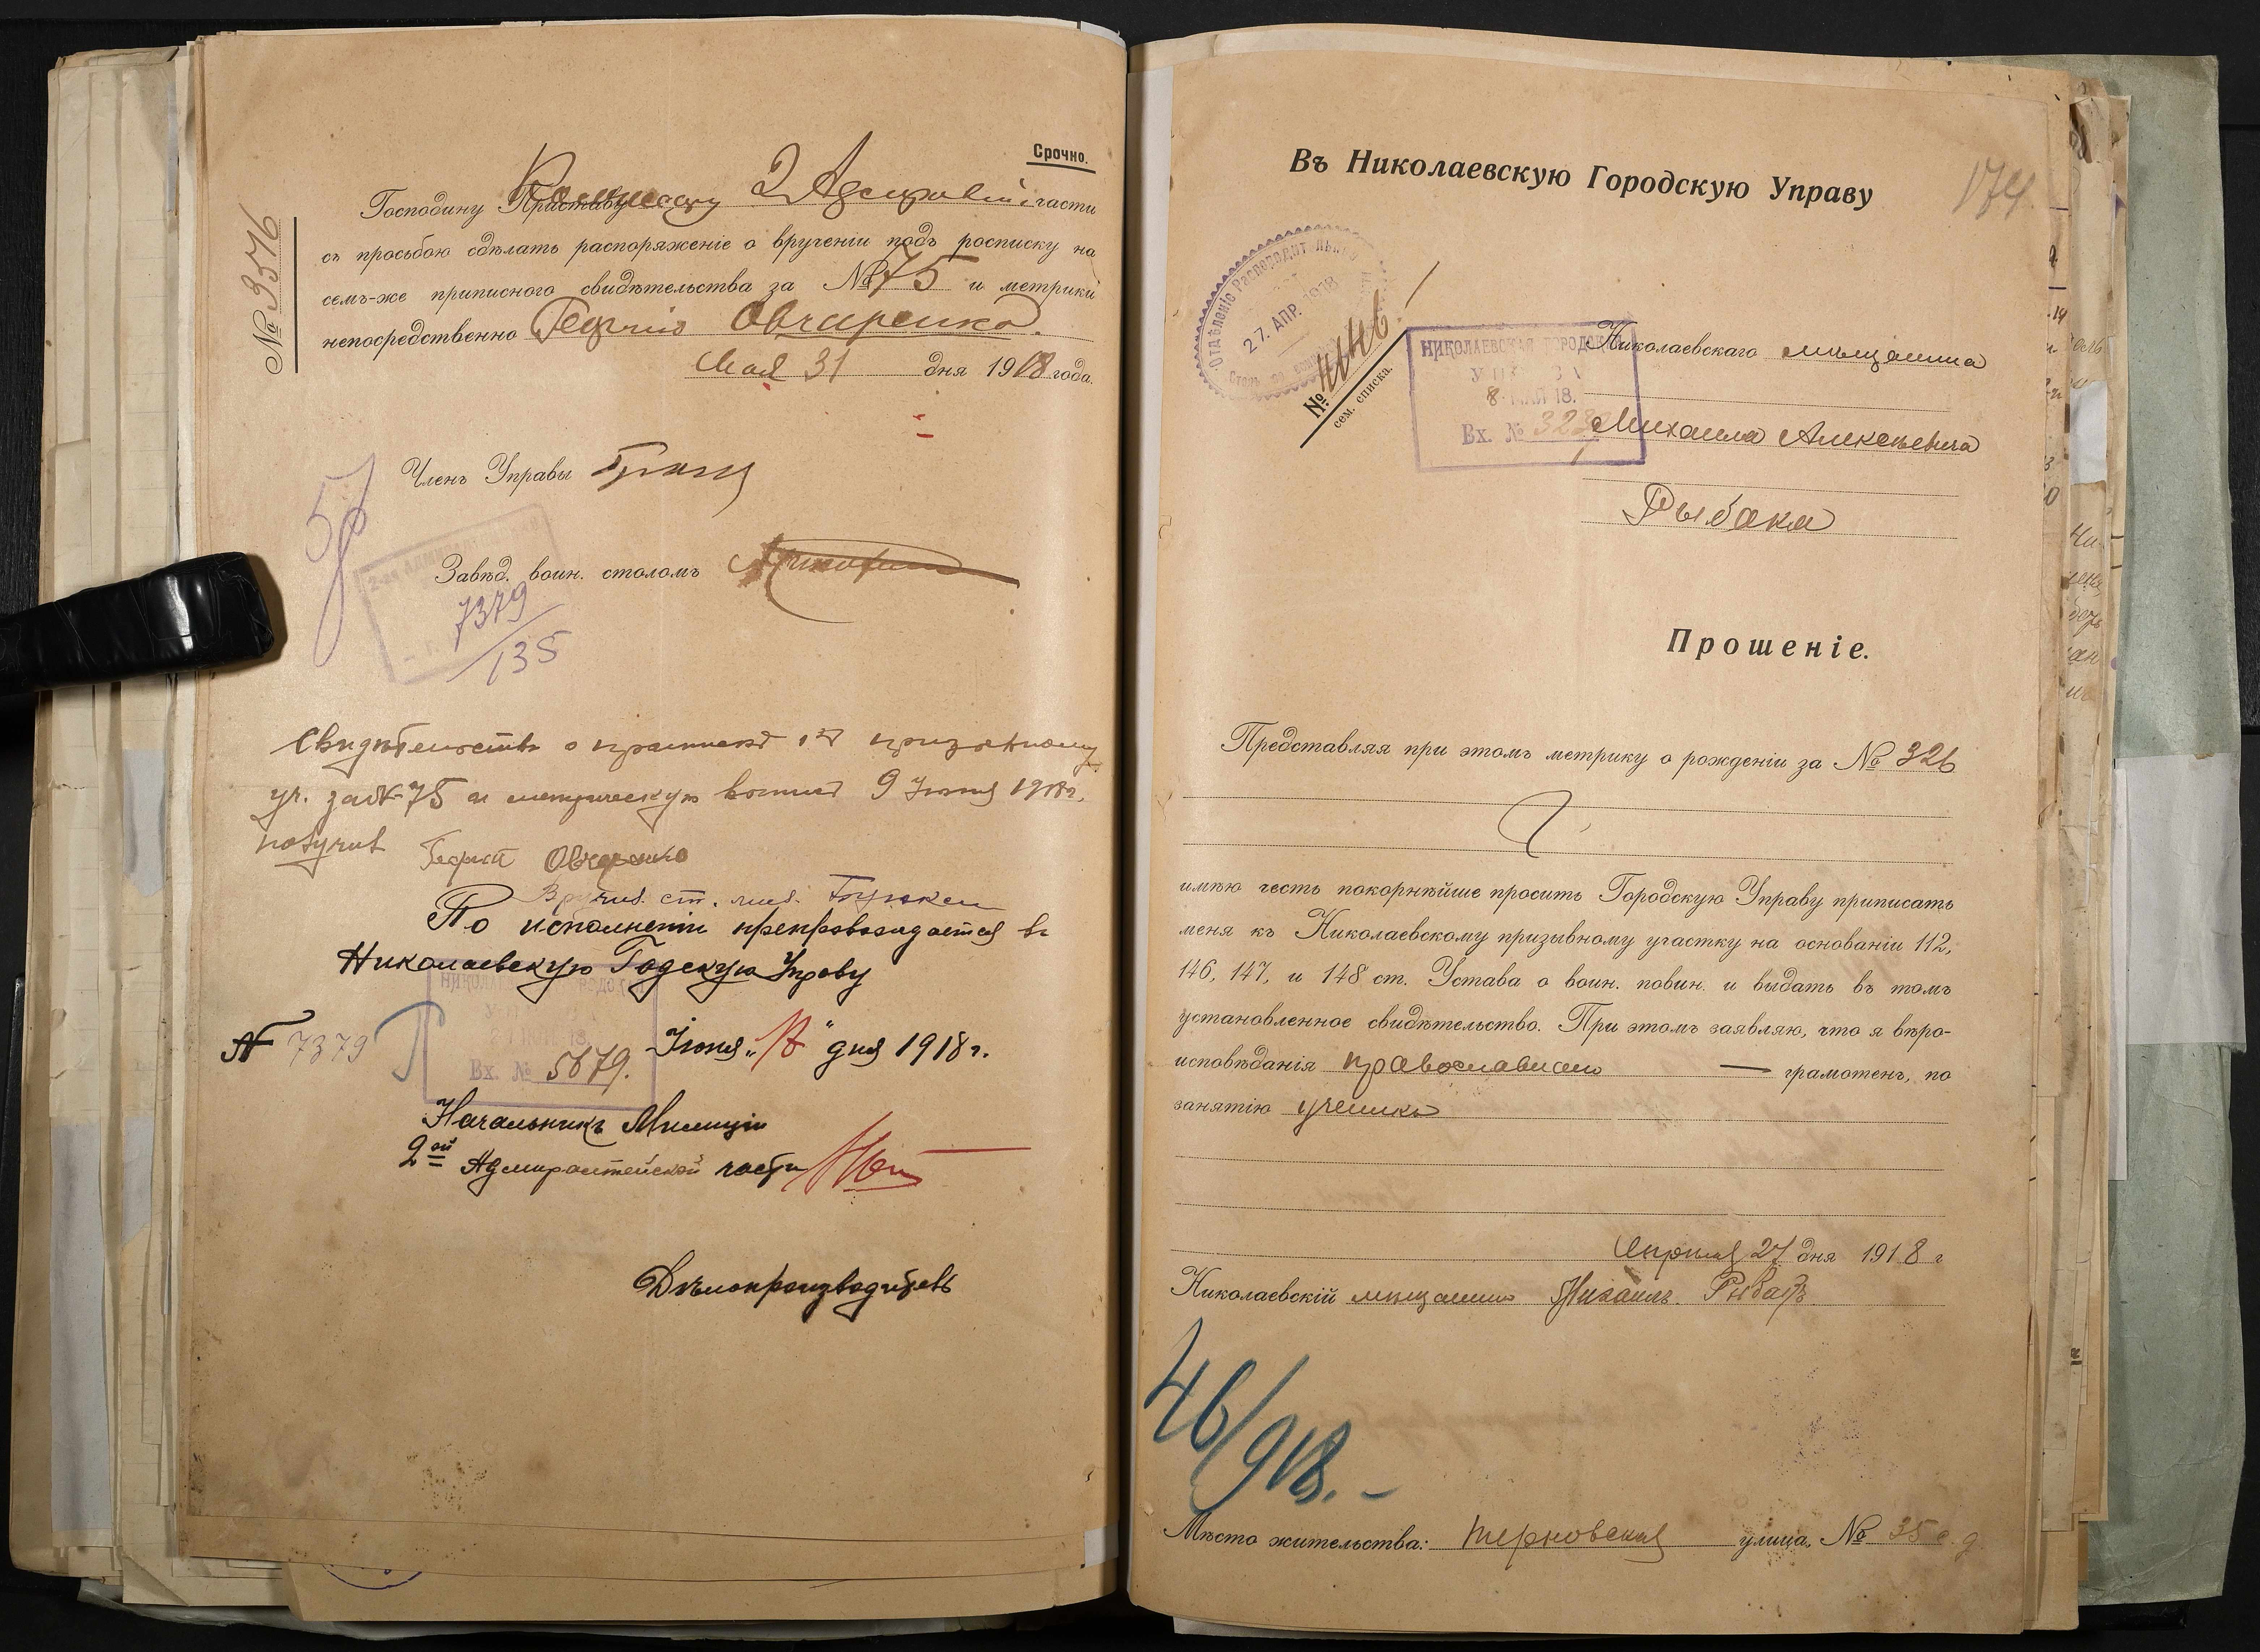 Срочно.
№ 9576
Господину Приставу 2 Адмиралт. части
съ просьбою сдѣлать распоряженіе о врученіи подъ росписку на
семъ-же приписного свидѣтельства за № 75 и метрики
непосредственно Георгію Овчаренко.
Мая 31 дня 1918 года.
Членъ Управы
57
Завѣд. воин. столомъ
7379
135
Свидѣтельство о припискѣ къ призывному
уч. за № 75 и метрическую 9 Іюня 1918 г.
получил Георгій Овчаренко
Вручил ст. мил.
По исполненіи препровождается въ
Николаевскую Годскую Управу
№ 7379
Іюня „18" дня 1918 г.
Вх. № 5679.
Начальникъ Милиціи
2ой Адмиралтейской части
Дѣлопроизводитель
Въ Николаевскую Городскую Управу
174.
Отдѣленіе Распорядительное
27. АПР. 1918
№ 4646
сем. списка.
НИКОЛАЕВСКАЯ ГОРОДСКАЯ
УПРАВА
8- МАЯ 18.
Вх. №
Николаевскаго мѣщанина
Михаила Алексѣевича
Рыбака
Прошеніе.
Представляя при этомъ метрику о рожденіи за № 326
имѣю честь покорнѣйше просить Городскую Управу приписать
меня къ Николаевскому призывному участку на основаніи 112,
146, 147, и 148 ст. Устава о воин. повин. и выдать въ томъ
установленное свидѣтельство. При этомъ заявляю, что я вѣро-
исповѣданія православнаго — грамотенъ, по
занятію ученикъ
Апрѣля 27 дня 1918 г
Николаевскій мѣщанинъ Михаилъ Рыбакъ
46/918. –
Мѣсто жительства: Терновская улица, № 35 с. д.